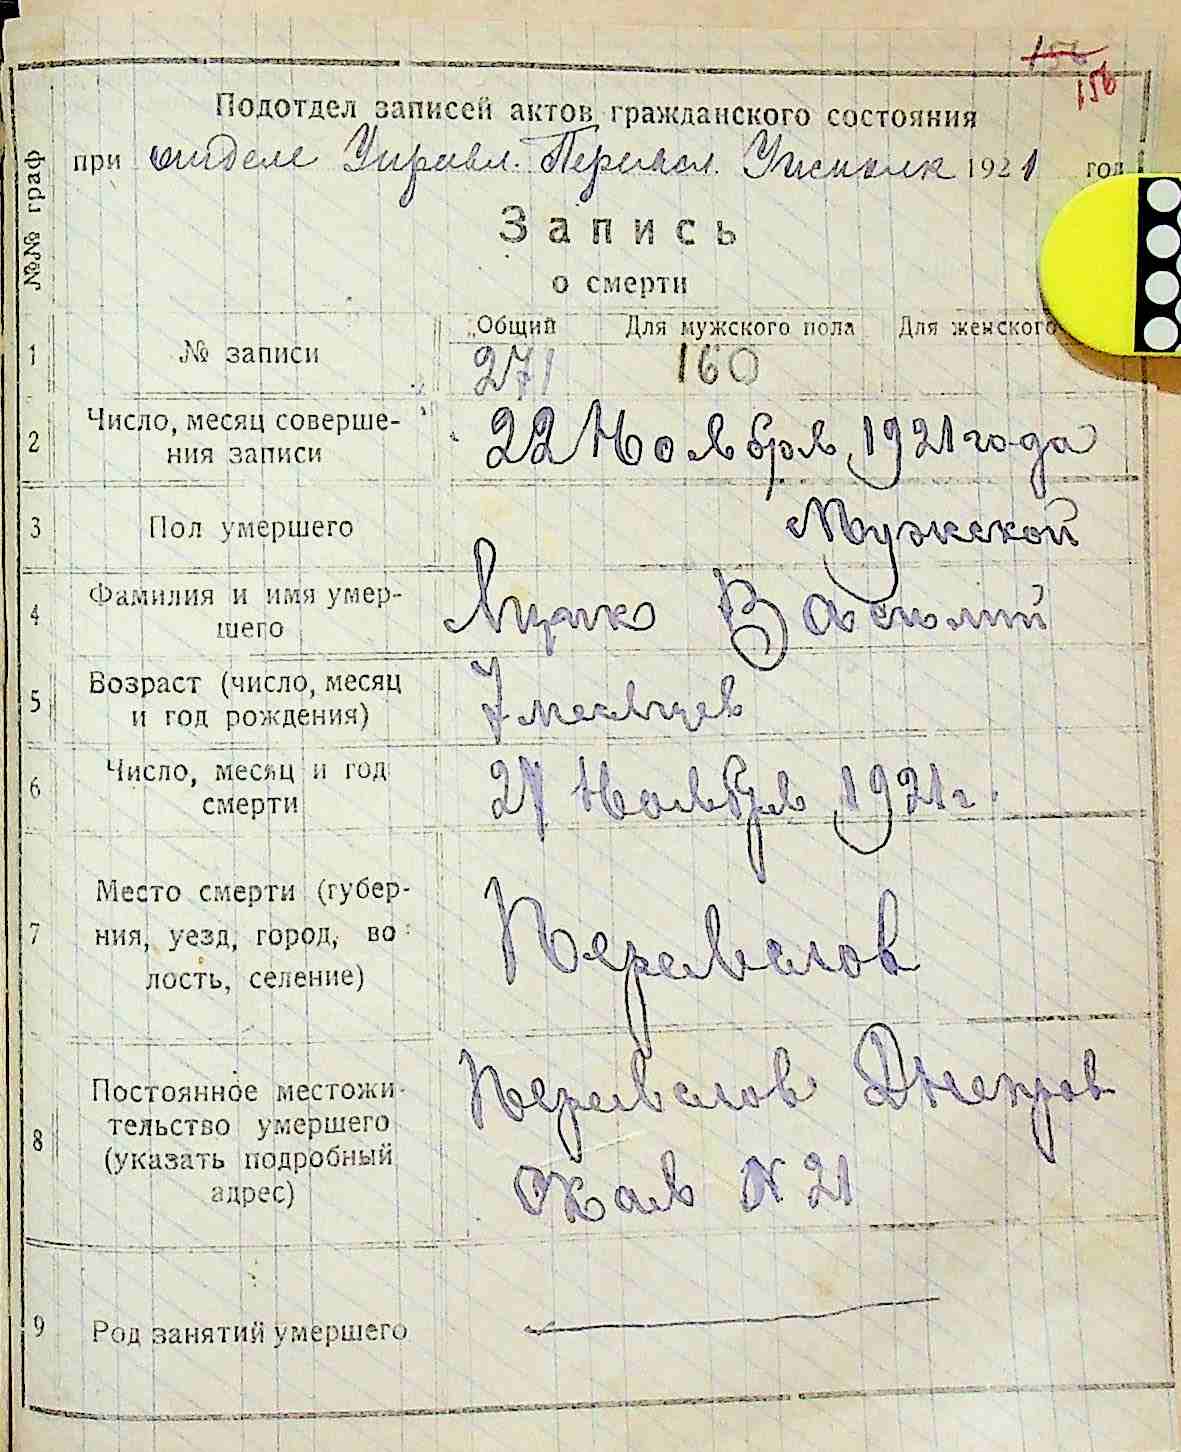 156
156
Подотдел записей актов гражданского состояния
при отделе Управл. Переясл. 1921 год
№№ граф
Запись
о смерти
Общий Для мужского пола Для женского
1 № записи 271 160
2 Число, месяц соверше-
ния записи 22 Ноября 1921 года
3 Пол умершего Мужской
4 Фамилия и имя умер-
шего Василий
5 Возраст (число, месяц
и год рождения) 7 месяцев
6 Число, месяц и год
смерти Ноября 1921 г.
7 Место смерти (губер-
ния, уезд, город, во
лость, селение)
8 Постоянное местожи-
тельство умершего
(указать подробный
адрес) N 21
9 Род занятий умершего